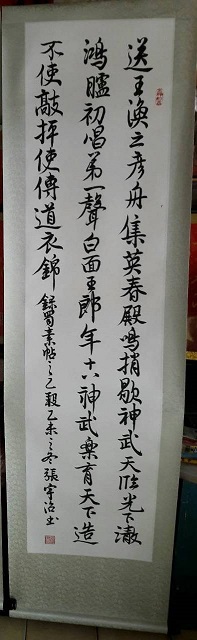 送王渙之彥舟集英春殿鳴捎歇神武天臨光下澈
鴻臚初唱第一聲白面王郎年十八神武樂育天下造
不使敲抨使傳道衣錦 錄蜀素帖之乙未之冬張宇治书